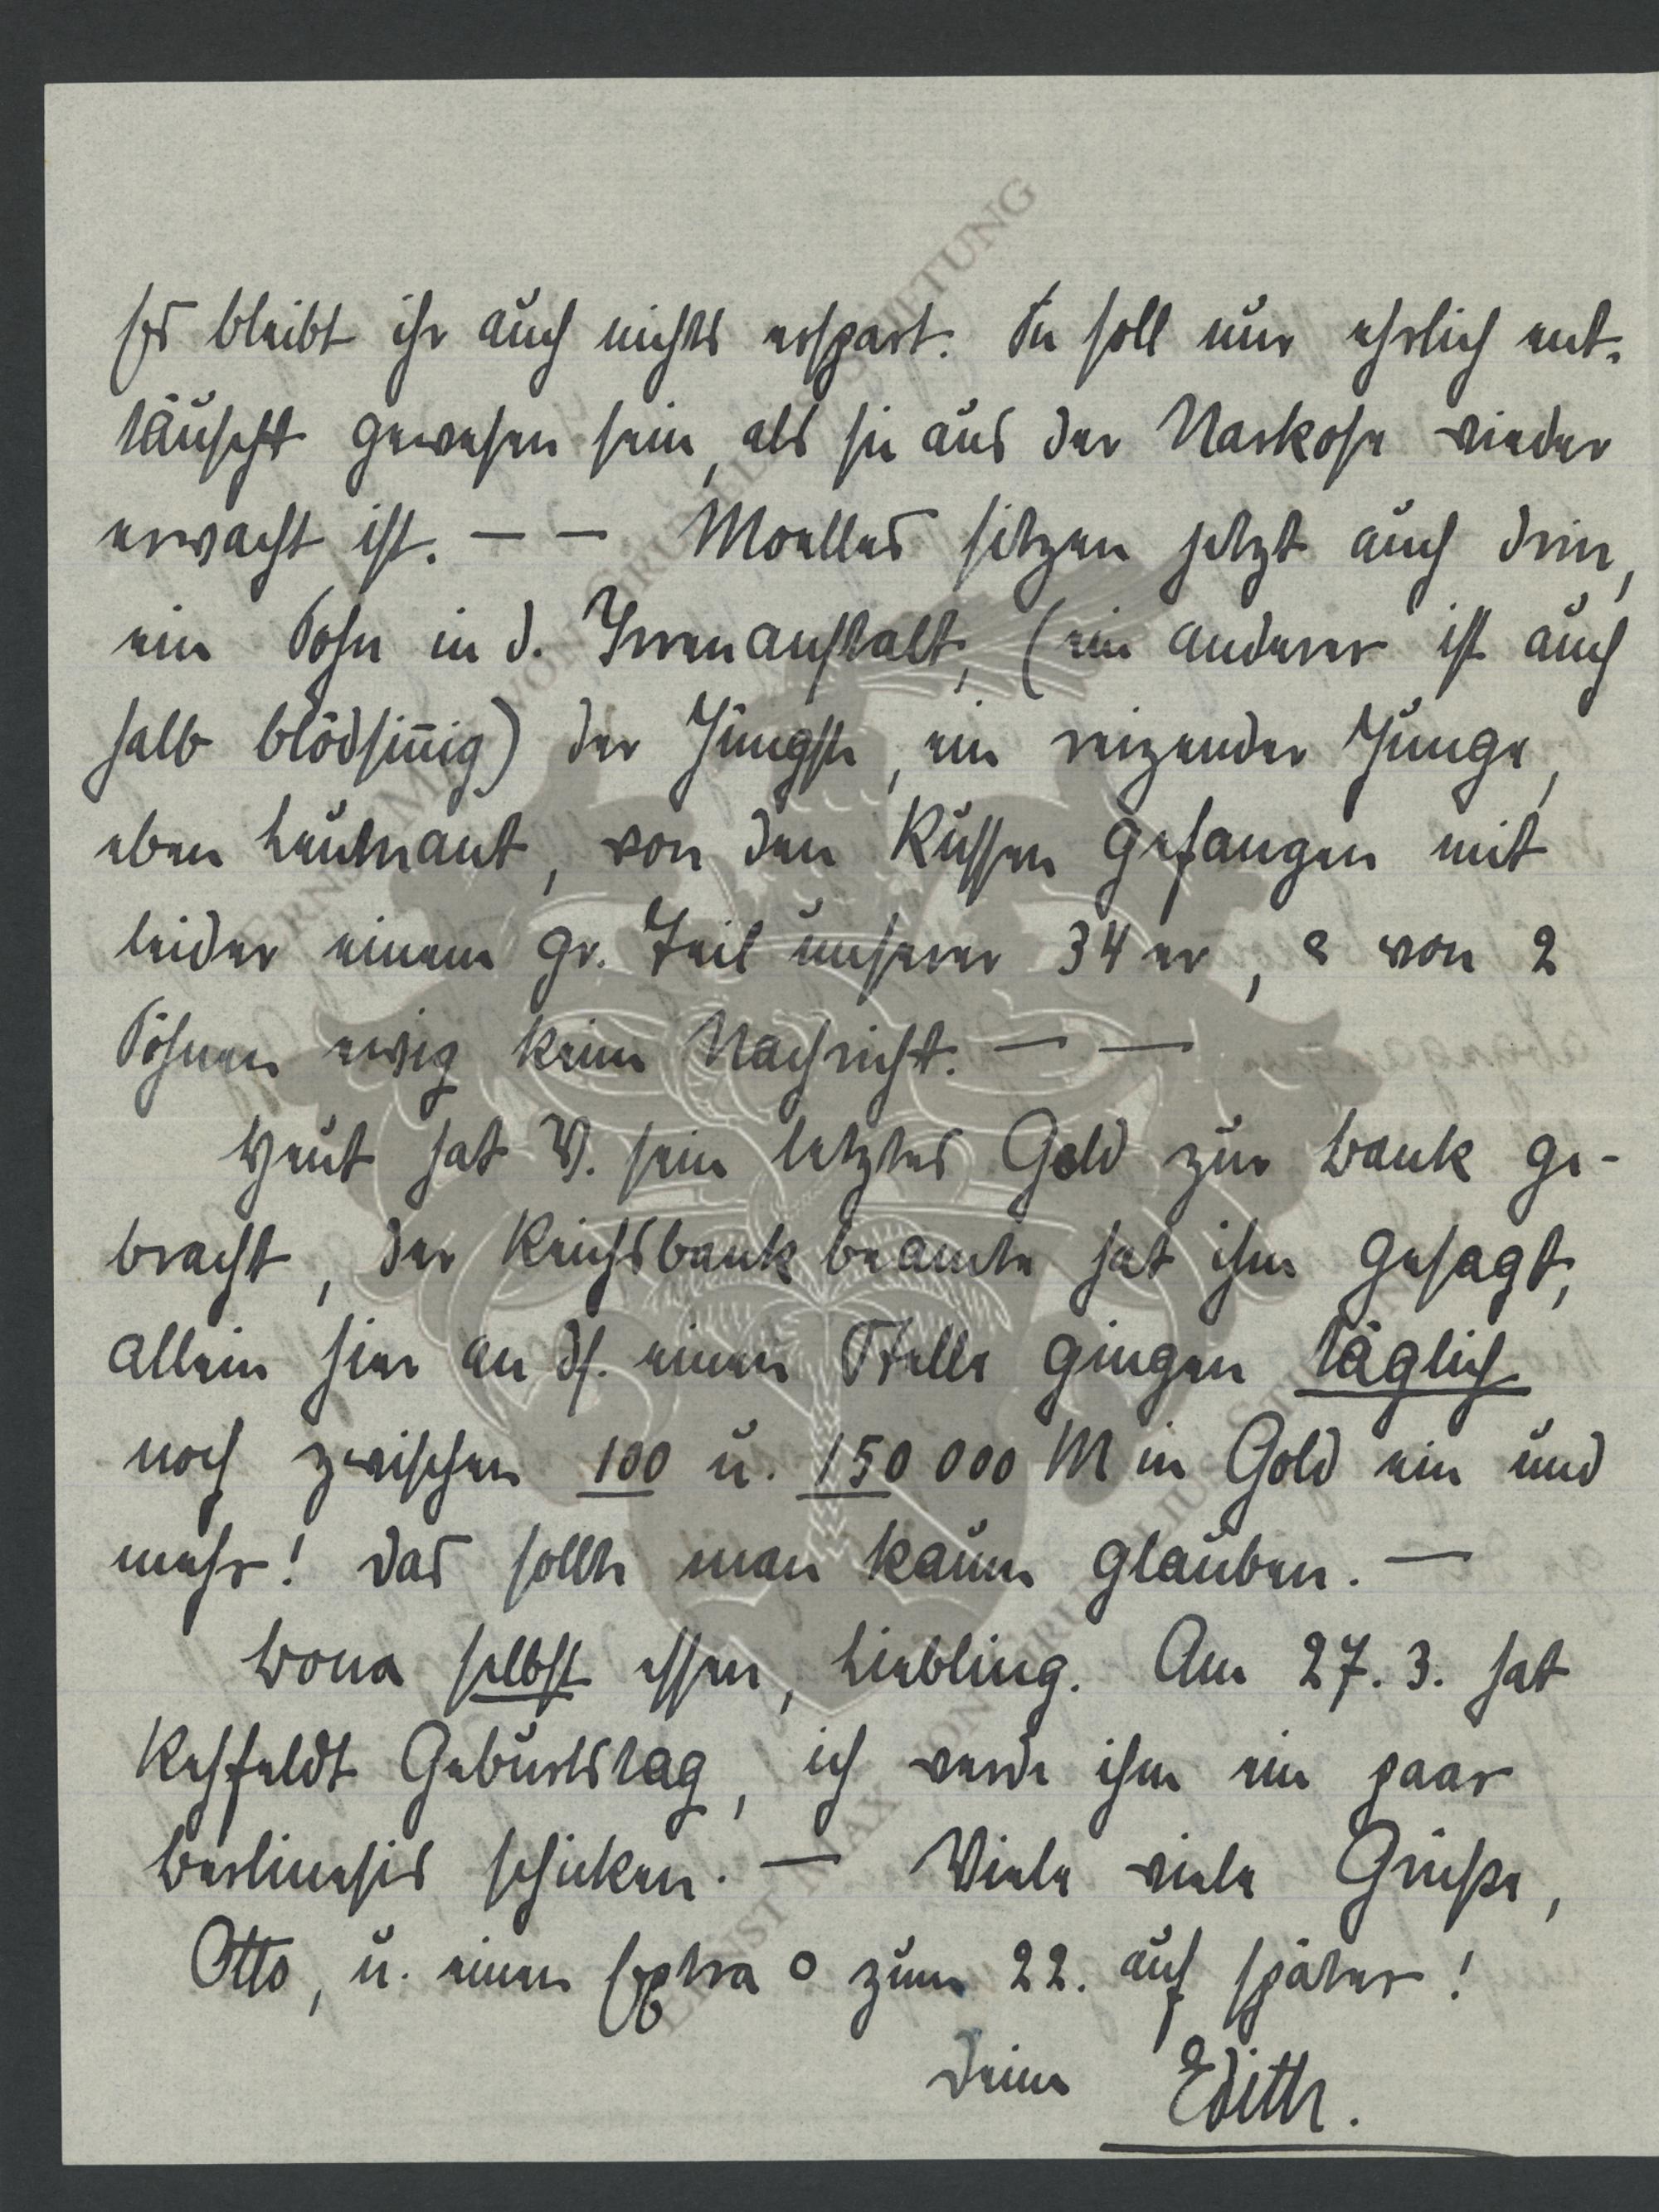 Es bleibt ihr auch nichts erspart. Sie soll nur ehrlich ent-
täuscht gewesen sein, als sie aus der Narkose wieder
erwacht ist. — — Moellers sitzen jetzt auch drin,
ein Sohn in d. Irrenanstalt, (ein anderer ist auch
halb blödsin̄ig) der Jüngste, ein reizender Junge,
eben Leutnant, von den Russen gefangen mit
leider einem gr. Teil unserer 34er, & von 2
Söhnen ewig keine Nachricht. — —
Heut hat W. sein letztes Gold zur Bank ge-
bracht, der Reichsbankbeamte hat ihm gesagt,
allein hier an ds. einen Stelle gingen täglich
noch zwischen 100 u. 150 000 M in Gold ein und
mehr! Das sollte man kaum glauben. —
selbst essen, Liebling. Am 27. 3. hat
Rehfeldt Geburtstag, ich werde ihm ein paar
schicken. — Viele viele Grüsse,
Otto, u. einen Extra o zum 22. auf später!
Deine Edith.
ERNST MAX VON GRUNELIUS-STIFTUNG
ERNST MAX VON GRUNELIUS-STIFTUNG